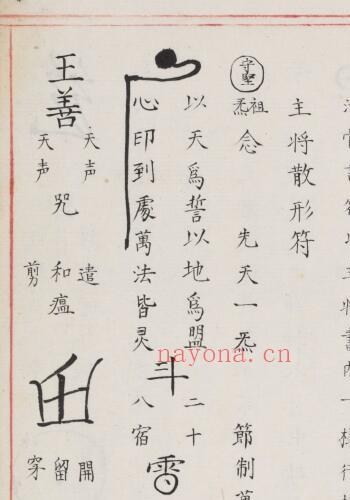 主将散形符
守堅
祖炁
念
先天一炁
節制萬
以天爲誓以地爲盟
二十
心印到處萬法皆灵
斗
八宿
雷
王善
天声
天声
咒
遣
和瘟
剪
開
留
穿
nayona.cn